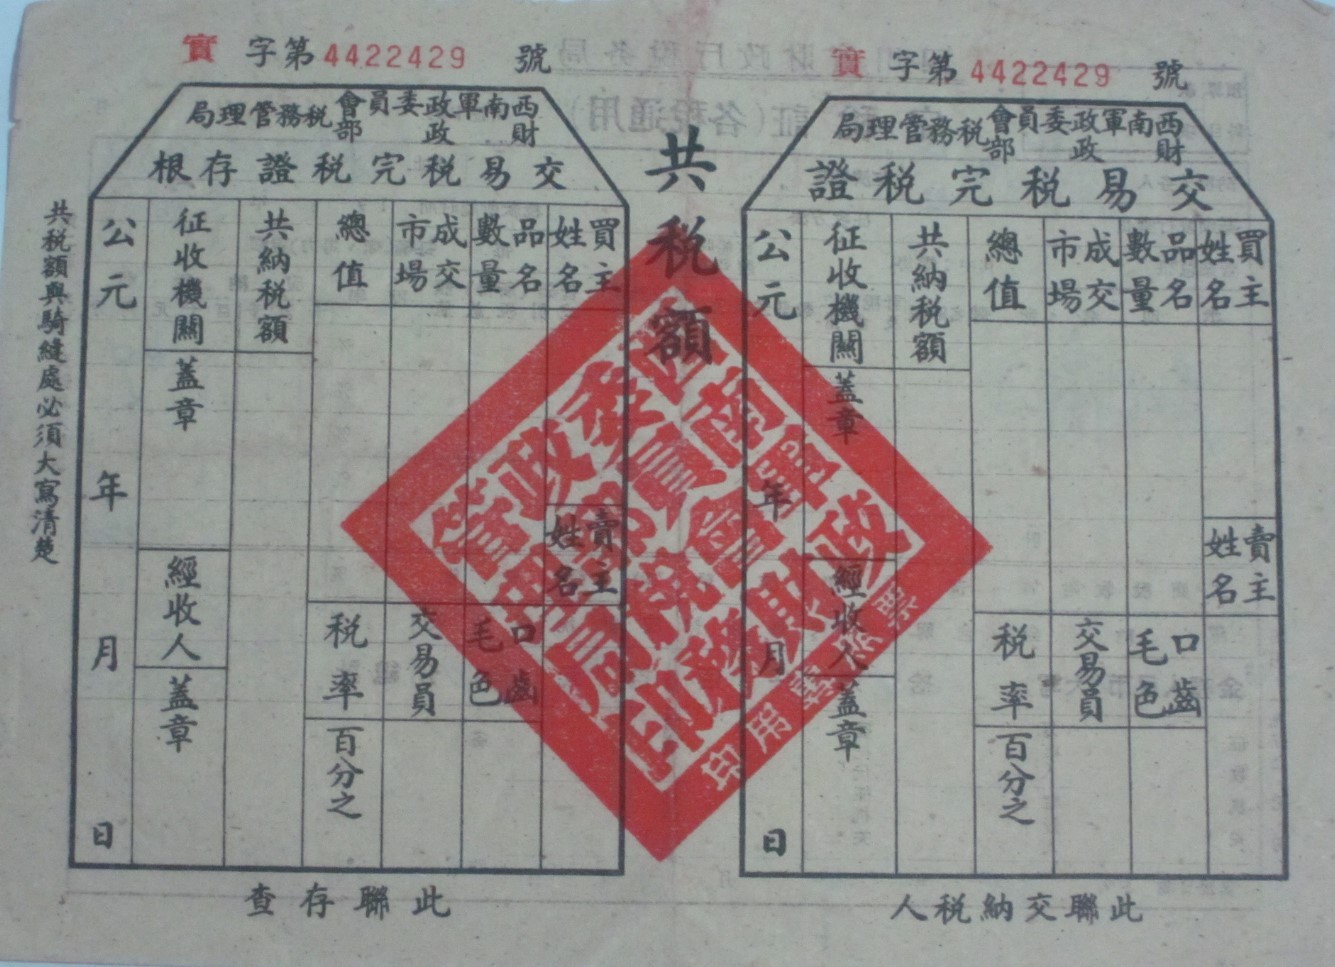 實字第4422429號
西南軍政委員會財政部税務管理局
交易税完税證
買主姓名
品名
數量
成交市場
總值
共納税額
征收機關
蓋章
公元 年 月 日
賣主姓名
口齒
毛色
交易員
税率
百分之
經收人
蓋章
此聯交納税人
共税額
西南軍政
委員會財
政部税務
管理局印
票照專用印
實字第4422429號
西南軍政委員會財政部税務管理局
交易税完税證存根
買主姓名
品名
數量
成交市場
總值
共納税額
征收機關
蓋章
公元 年 月 日
賣主姓名
口齒
毛色
交易員
税率
百分之
經收人
蓋章
此聯存查
共税額與騎縫處必須大寫清楚